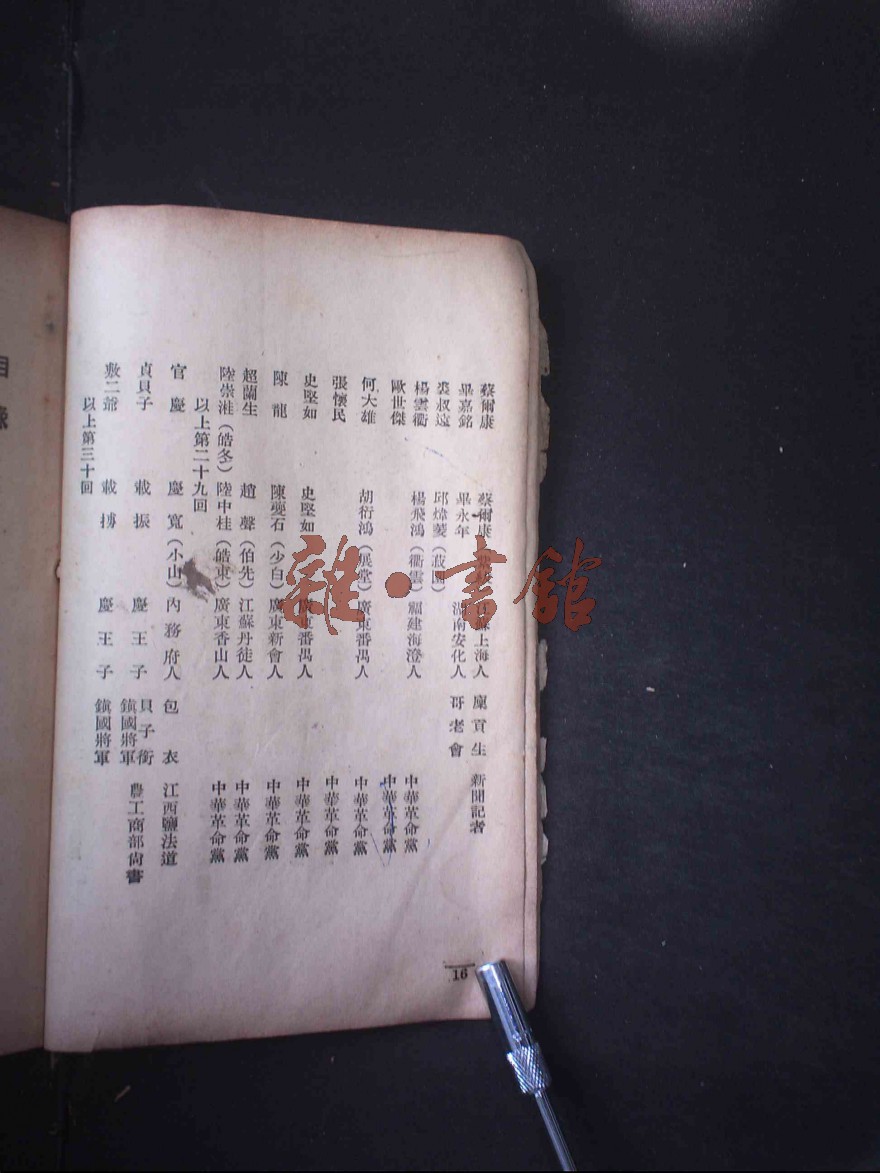 蔡爾康 蔡爾康 上海人 廩貢生 新聞記者
畢嘉銘 畢永年 湖南安化人 哥老會
裘叔遠 邱煒萲(菽園)
楊雲衢 楊飛鴻(衢雲)福建海澄人 中華革命黨
歐世傑 中華革命黨
何大雄 胡衍鴻(展堂)廣東番禺人 中華革命黨
張懷民 中華革命黨
史堅如 史堅如 廣東番禺人 中華革命黨
陳龍 陳夔石(少白)廣東新會人 中華革命黨
超蘭生 趙聲(伯先)江蘇丹徒人 中華革命黨
陸崇溎(皓冬)陸中桂(皓東)廣東香山人 中華革命黨
以上第二十九回
官慶 慶寬(小山)內務府人 包衣 江西鹽法道
貞貝子 載振 慶王子 貝子銜鎮國將軍 農工商部尙書
敷二爺 載搏 慶王子 鎮國將軍
以上第三十回
16
雜·書館
目錄